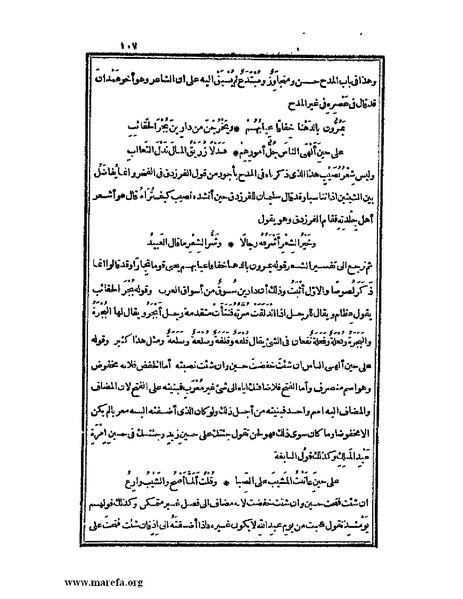 ١٠٧
وهذا في باب المدح حسن ومتجاوز ومبتدع لم يسبق اليه على ان الشاعر وهو أخو همدان
قد قال في عصره في غير المدح
يمرون بالدهنا خفافا عيابهم * ويخرجن من دارين بجر الحقائب
على حين ألهى الناس جل أمورهم * فندلا زريق المال ندل الثعالب
وليس شعر نصيب هذا الذي ذكرناه في المدح بأجود من قول الفرزدق في الفخر وانما يفاضل
بين الشيئين اذا تناسبا وقد قال سليمان للفرزدق حين أنشده نصيب كيف تراه قال هو أشعر
أهل جلدته فقام الفرزدق وهو يقول
وخير الشعر أشرفه رجالا * وشر الشعر ما قال العبيد
ثم نرجع الى تفسير الشعر قوله يمرون بالدهنا خفافا عيابهم يعني قوما تجارا وقد قالوا انما
ذكر لصوصا والاول أثبت وذلك أن دارين سوق من أسواق العرب وقوله بجر الحقائب
يقول عظام ويقال للرجل اذا اندلقت سرته فنتأت متقدمة رجل أبجر ويقال لها البجرة
والبجرة وفعلة وفعلة تقعان في الشئ يقال قلفة وقلفة وصلعة وصلعة ومثل هذا كثير وقوله
على حين ألهى الناس ان شئت خفضت حين وان شئت نصبته أما الخفض فلانه مخفوض
وهو اسم منصرف وأما الفتح فلاضافتك اياه الى شئ غير معرب فبنيته على الفتح لان المضاف
والمضاف اليه اسم واحد فبنيته من أجل ذلك ولو كان الذي أضفته اليه معربا لم يكن
الا مخفوضا وما كان سوى ذلك فهو لحن تقول جئتك على حين زيد وجئتك في حين إمرة
عبد الملك وكذلك قول النابغة
على حين عاتبت المشيب على الصبا * وقلت ألما أصح والشيب وازع
ان شئت فتحت حين وان شئت خفضت لانه مضاف الى فعل غير متمكن وكذلك قولهم
يومئذ تقول عجبت من يوم عبد الله لا يكون غيره فاذا أضفته الى اذ فان شئت فتحت على
www.marefa.org